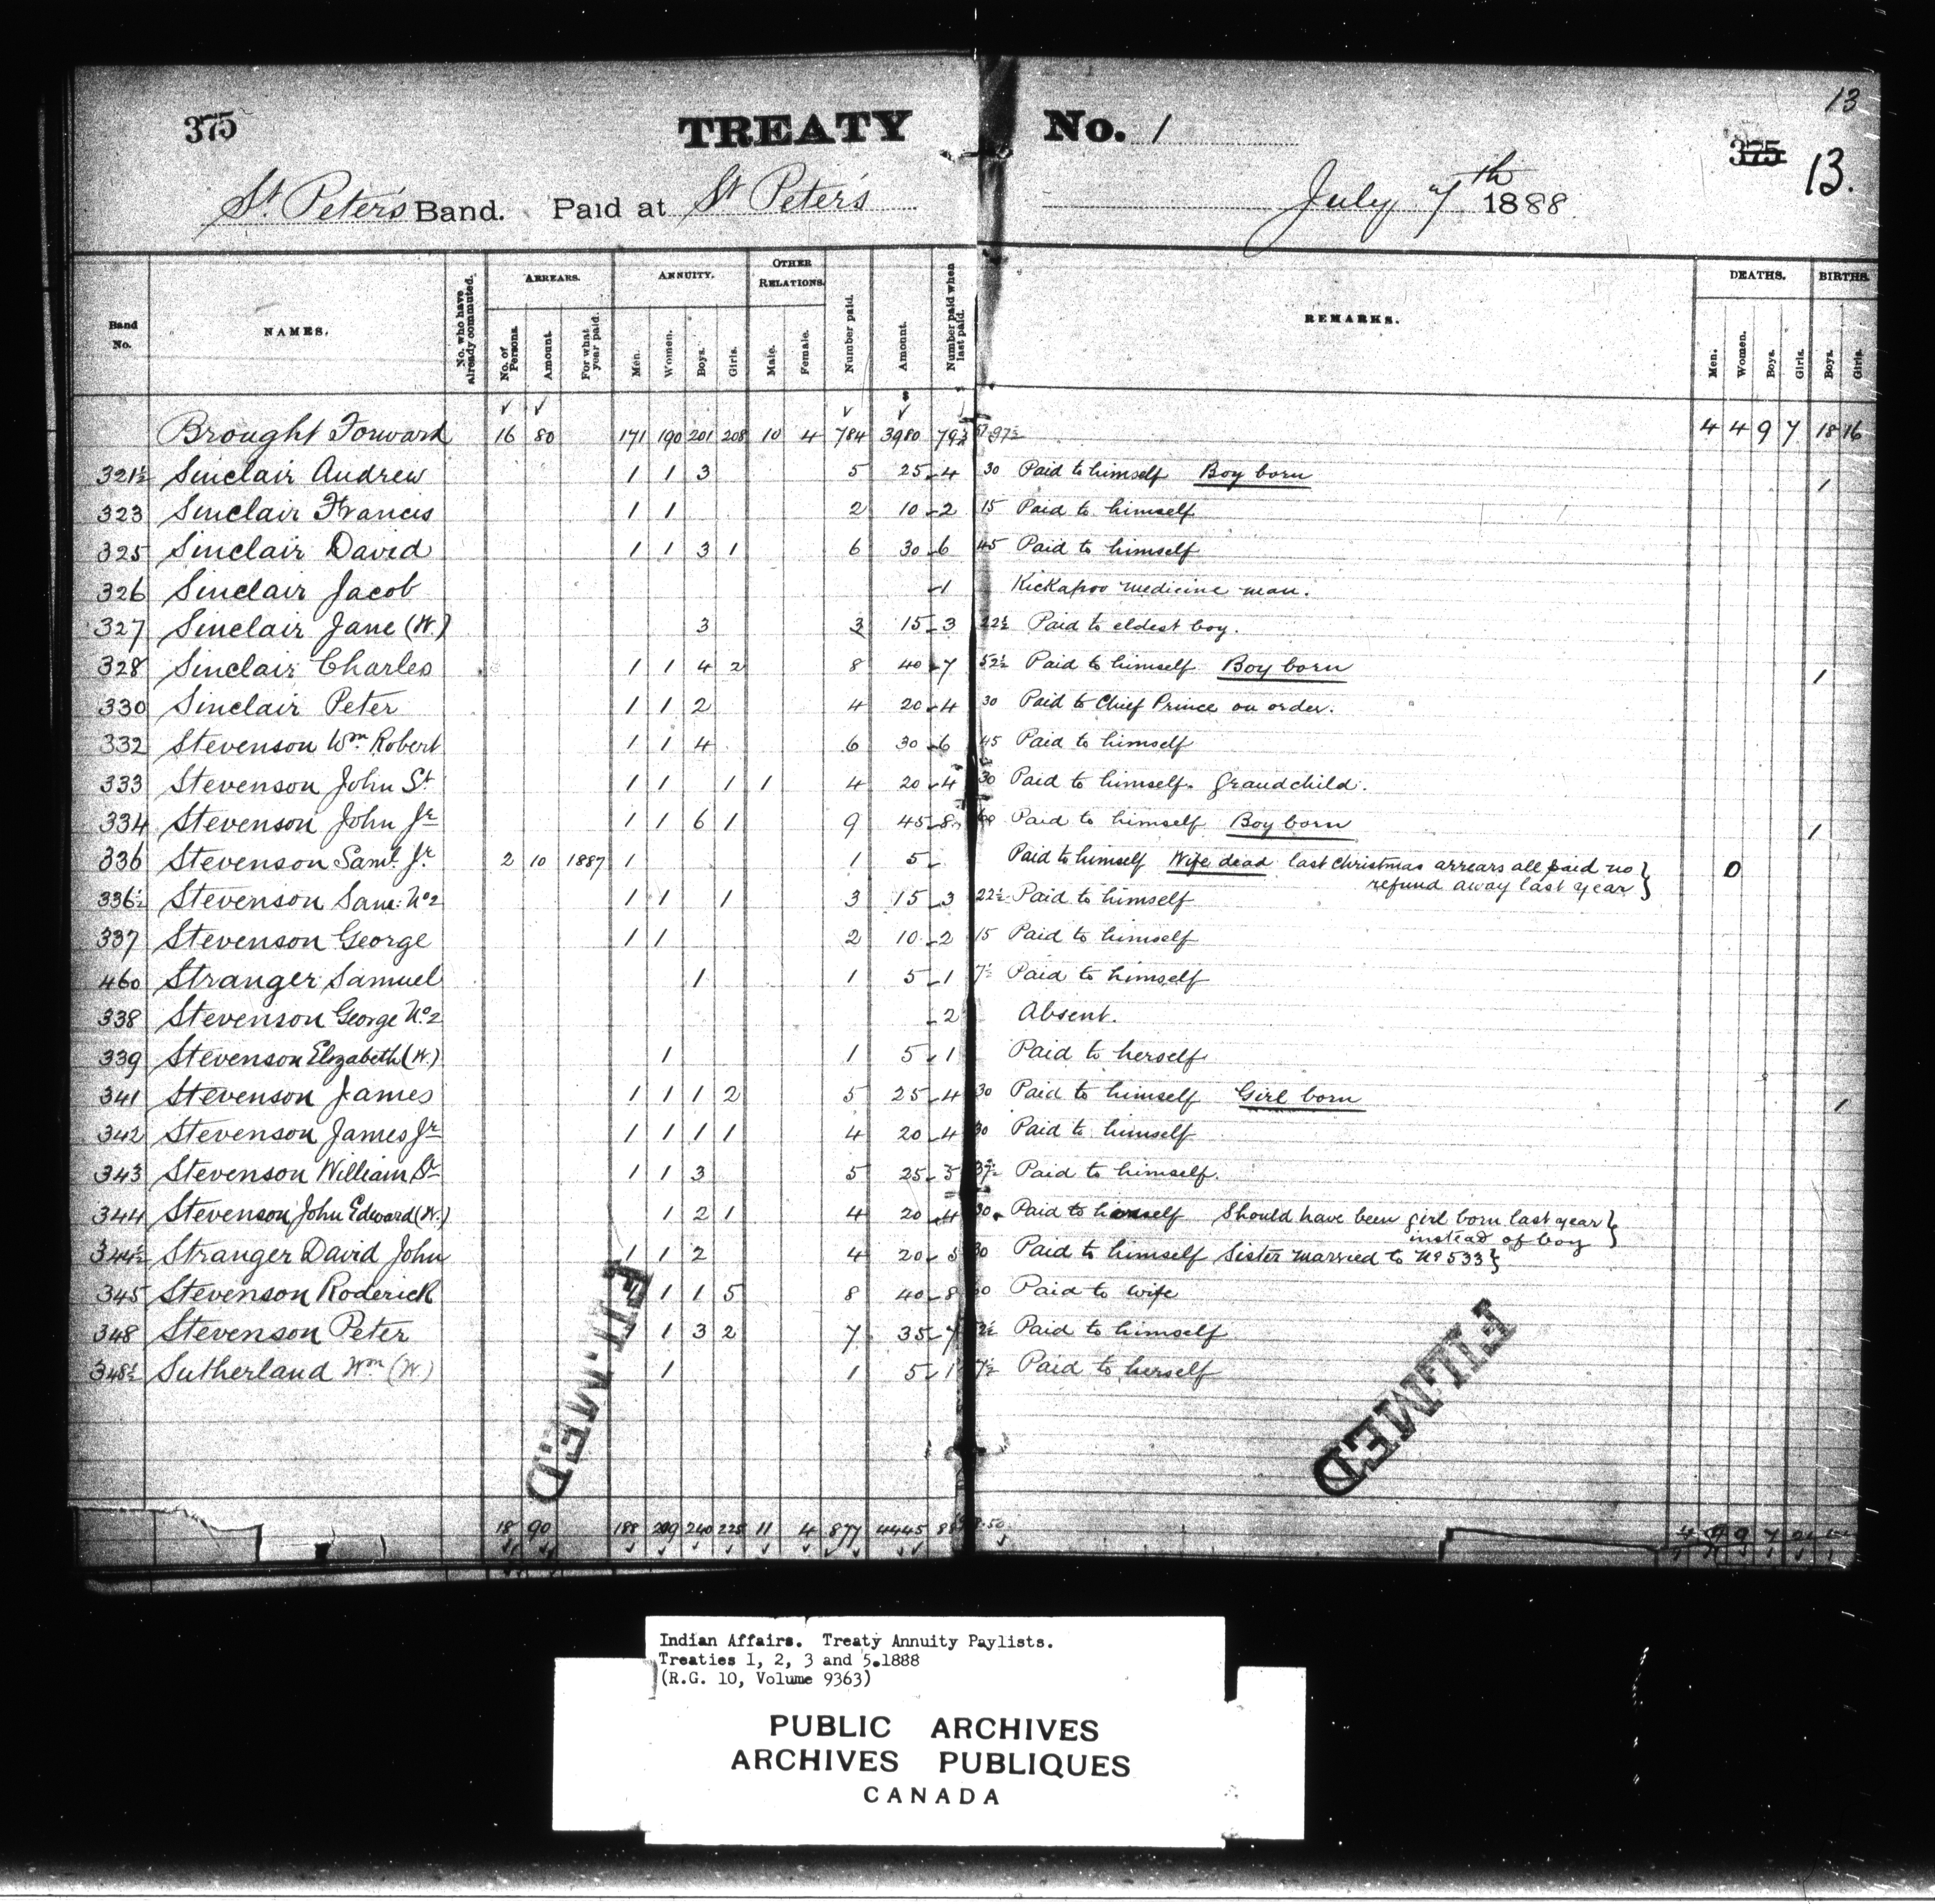 13
375 TREATY No. 1 375 13.
St. Peter's Band. Paid at St Peter's July 7th 1888
Band No. NAMES. No. who have already commuted. ARREARS. No. of Persons. Amount. For what year paid. ANNUITY. Men. Women. Boys. Girls. OTHER RELATIONS. Male. Female. Number paid. Amount. Number paid when last paid. REMARKS. DEATHS. Men. Women. Boys. Girls. BIRTHS. Boys. Girls.
Brought Forward 16 80 171 190 201 208 10 4 784 3980 4 4 9 7 18 16
321½ Sinclair Andrew 1 1 3 5 25 4 30 Paid to himself Boy born 1
323 Sinclair Francis 1 1 2 10 2 15 Paid to himself
325 Sinclair David 1 1 3 1 6 30 6 45 Paid to himself
326 Sinclair Jacob 1 Kickapoo medicine man.
327 Sinclair Jane (W.) 3 3 15 3 22½ Paid to eldest boy.
328 Sinclair Charles 1 1 4 2 8 40 7 52½ Paid to himself Boy born 1
330 Sinclair Peter 1 1 2 4 20 4 30 Paid to Chief Prince on order.
332 Stevenson Wm Robert 1 1 4 6 30 6 45 Paid to himself
333 Stevenson John Sr 1 1 1 1 4 20 4 30 Paid to himself. Grandchild.
334 Stevenson John Jr 1 1 6 1 9 45 8 Paid to himself Boy born 1
336 Stevenson Saml. Jr 2 10 1887 1 1 5 Paid to himself Wife dead last Christmas arrears all paid no
refund away last year }
336½ Stevenson Sam: No2 1 1 1 3 15 3 22½ Paid to himself
337 Stevenson George 1 1 2 10 2 15 Paid to himself
460 Stranger Samuel 1 1 5 1 7½ Paid to himself
338 Stevenson George No2 2 Absent.
339 Stevenson Elizabeth (W.) 1 1 5 1 Paid to herself
341 Stevenson James 1 1 1 2 5 25 4 30 Paid to himself Girl born 1
342 Stevenson James Jr 1 1 1 1 4 20 4 30 Paid to himself
343 Stevenson William Sr 1 1 3 5 25 5 37½ Paid to himself.
344 Stevenson John Edward (W.) 1 2 1 4 20 4 30 Paid to Should have been girl born last year }
instead of boy
344½ Stranger David John 1 1 2 4 20 5 30 Paid to himself Sister married to No 533 }
345 Stevenson Roderick 1 1 1 5 8 40 8 Paid to wife
348 Stevenson Peter 1 1 3 2 7 35 7 Paid to himself
348½ Sutherland Wm (W) 1 1 5 1 7½ Paid to herself
FILMED FILMED
18 90 188 209 240 225 11 4 877 4445
Indian Affairs. Treaty Annuity Paylists.
Treaties 1, 2, 3 and 5.1888
(R.G. 10, Volume 9363)
PUBLIC ARCHIVES
ARCHIVES PUBLIQUES
CANADA